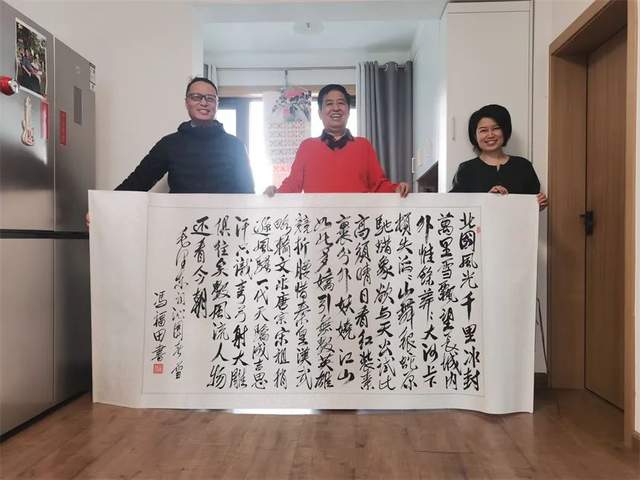 北國風光千里冰封
萬里雪飄望長城内
外惟餘莽々大河上下
頓失滔々山舞銀蛇原
馳蜡象欲与天公試比
高須晴日看红裝素
裹分外妖嬈江山
如此多嬌引無數英雄
競折腰惜秦皇漢武
略輸文采唐宗宋祖稍
遜風騷一代天驕成吉思
汗只識彎弓射大雕
俱往矣數風流人物
还看今朝
毛澤東词沁園春雪
馮福田書